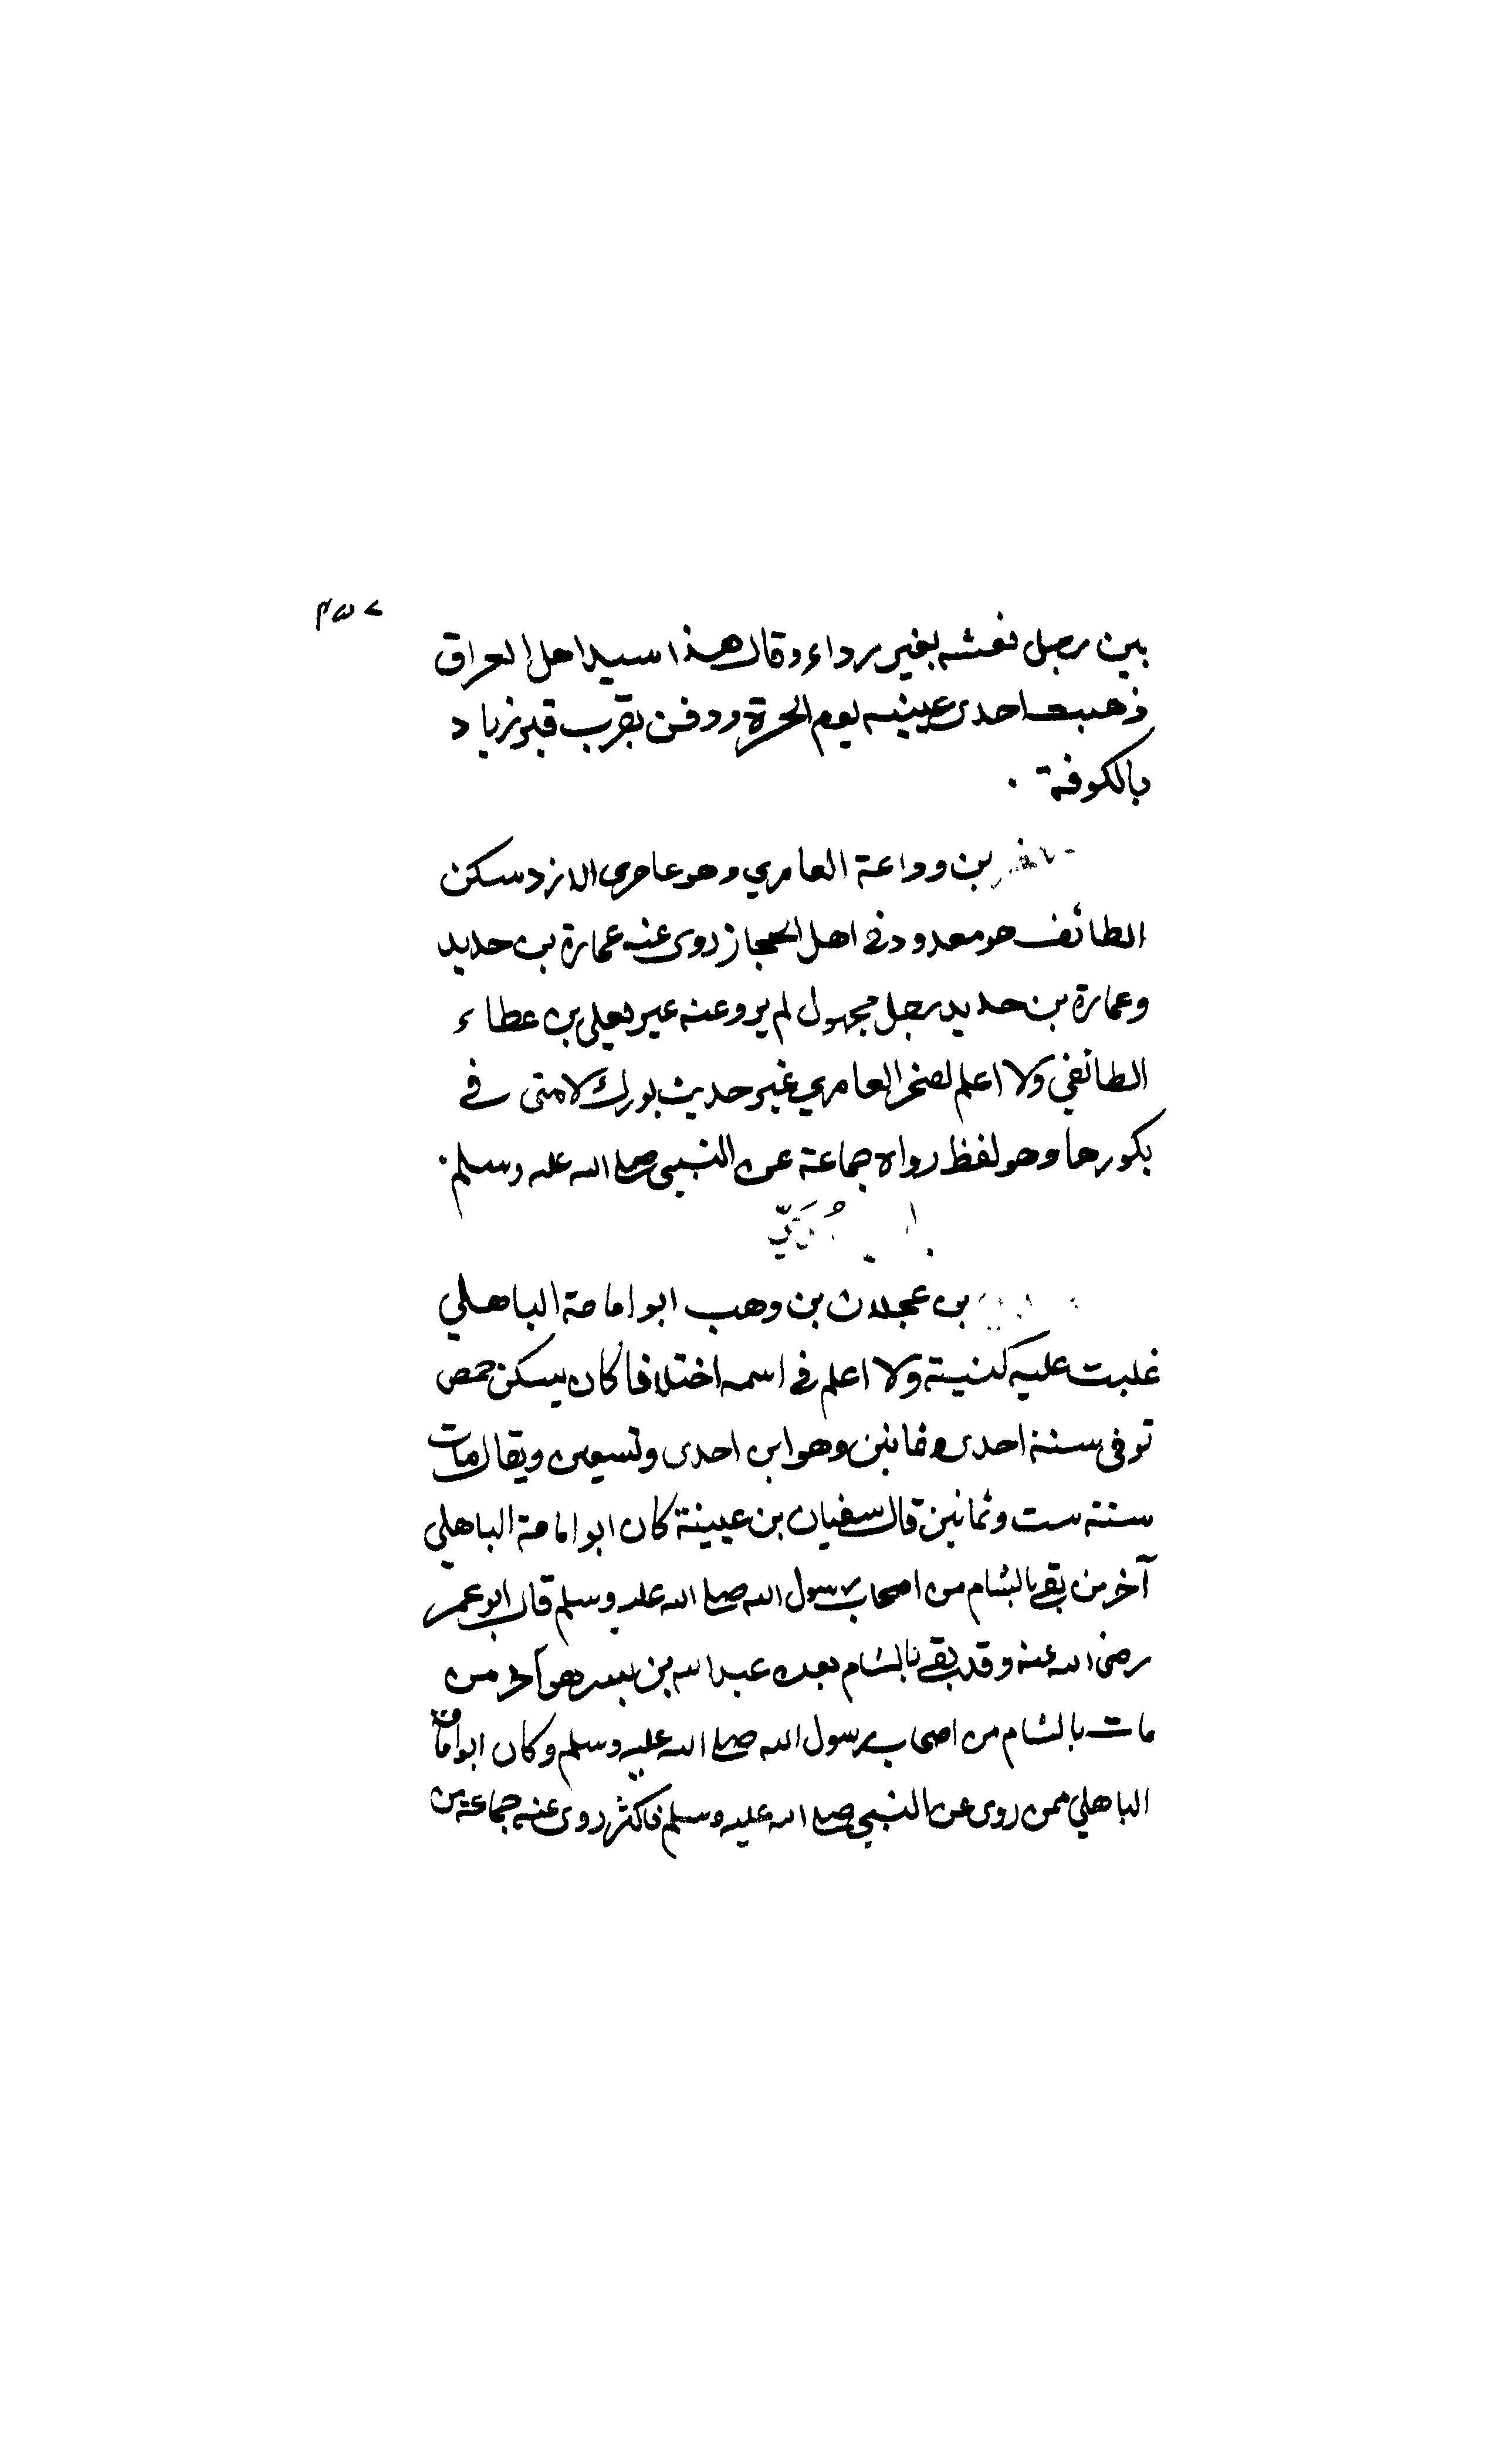 بين رجل نعشه بغير رداء وقال هذا سيد اهل العراق
ذهبت احدى عينيه يوم الحرة ودفن بقرب قبر زياد
بالكوفة .
بن وداعة العامري وهو عامرى الازد سكن
الطائف هو معدود فى اهل الحجاز روى عنه عمارة بن حديد
وعمارة بن حديد رجل مجهول لم يرو عنه غير يعلى بن عطاء
الطائفي ولا اعلم لصخر العامري غير حديث بورك لامتى في
بكورها وهو لفظ رواه جماعة عن النبي صلى الله عليه وسلم .
بن عجلان بن وهب ابو امامة الباهلي
غلبت عليه كنيته ولا اعلم في اسمه اختلافا كان يسكن حمص
توفى سنة احدى وثمانين وهو ابن احدى وتسعين ويقال مات
سنة ست وثمانين قال سفيان بن عيينة كان ابو امامة الباهلي
آخر من بقى بالشام من اصحاب رسول الله صلى الله عليه وسلم قال ابو عمر
رضى الله عنه وقد بقى بالشام بعده عبد الله بن بسر هو آخر من
مات بالشام من اصحاب رسول الله صلى الله عليه وسلم وكان ابو امامة
الباهلي ممن روى عن النبي صلى الله عليه وسلم فاكثر روى عنه جماعة من